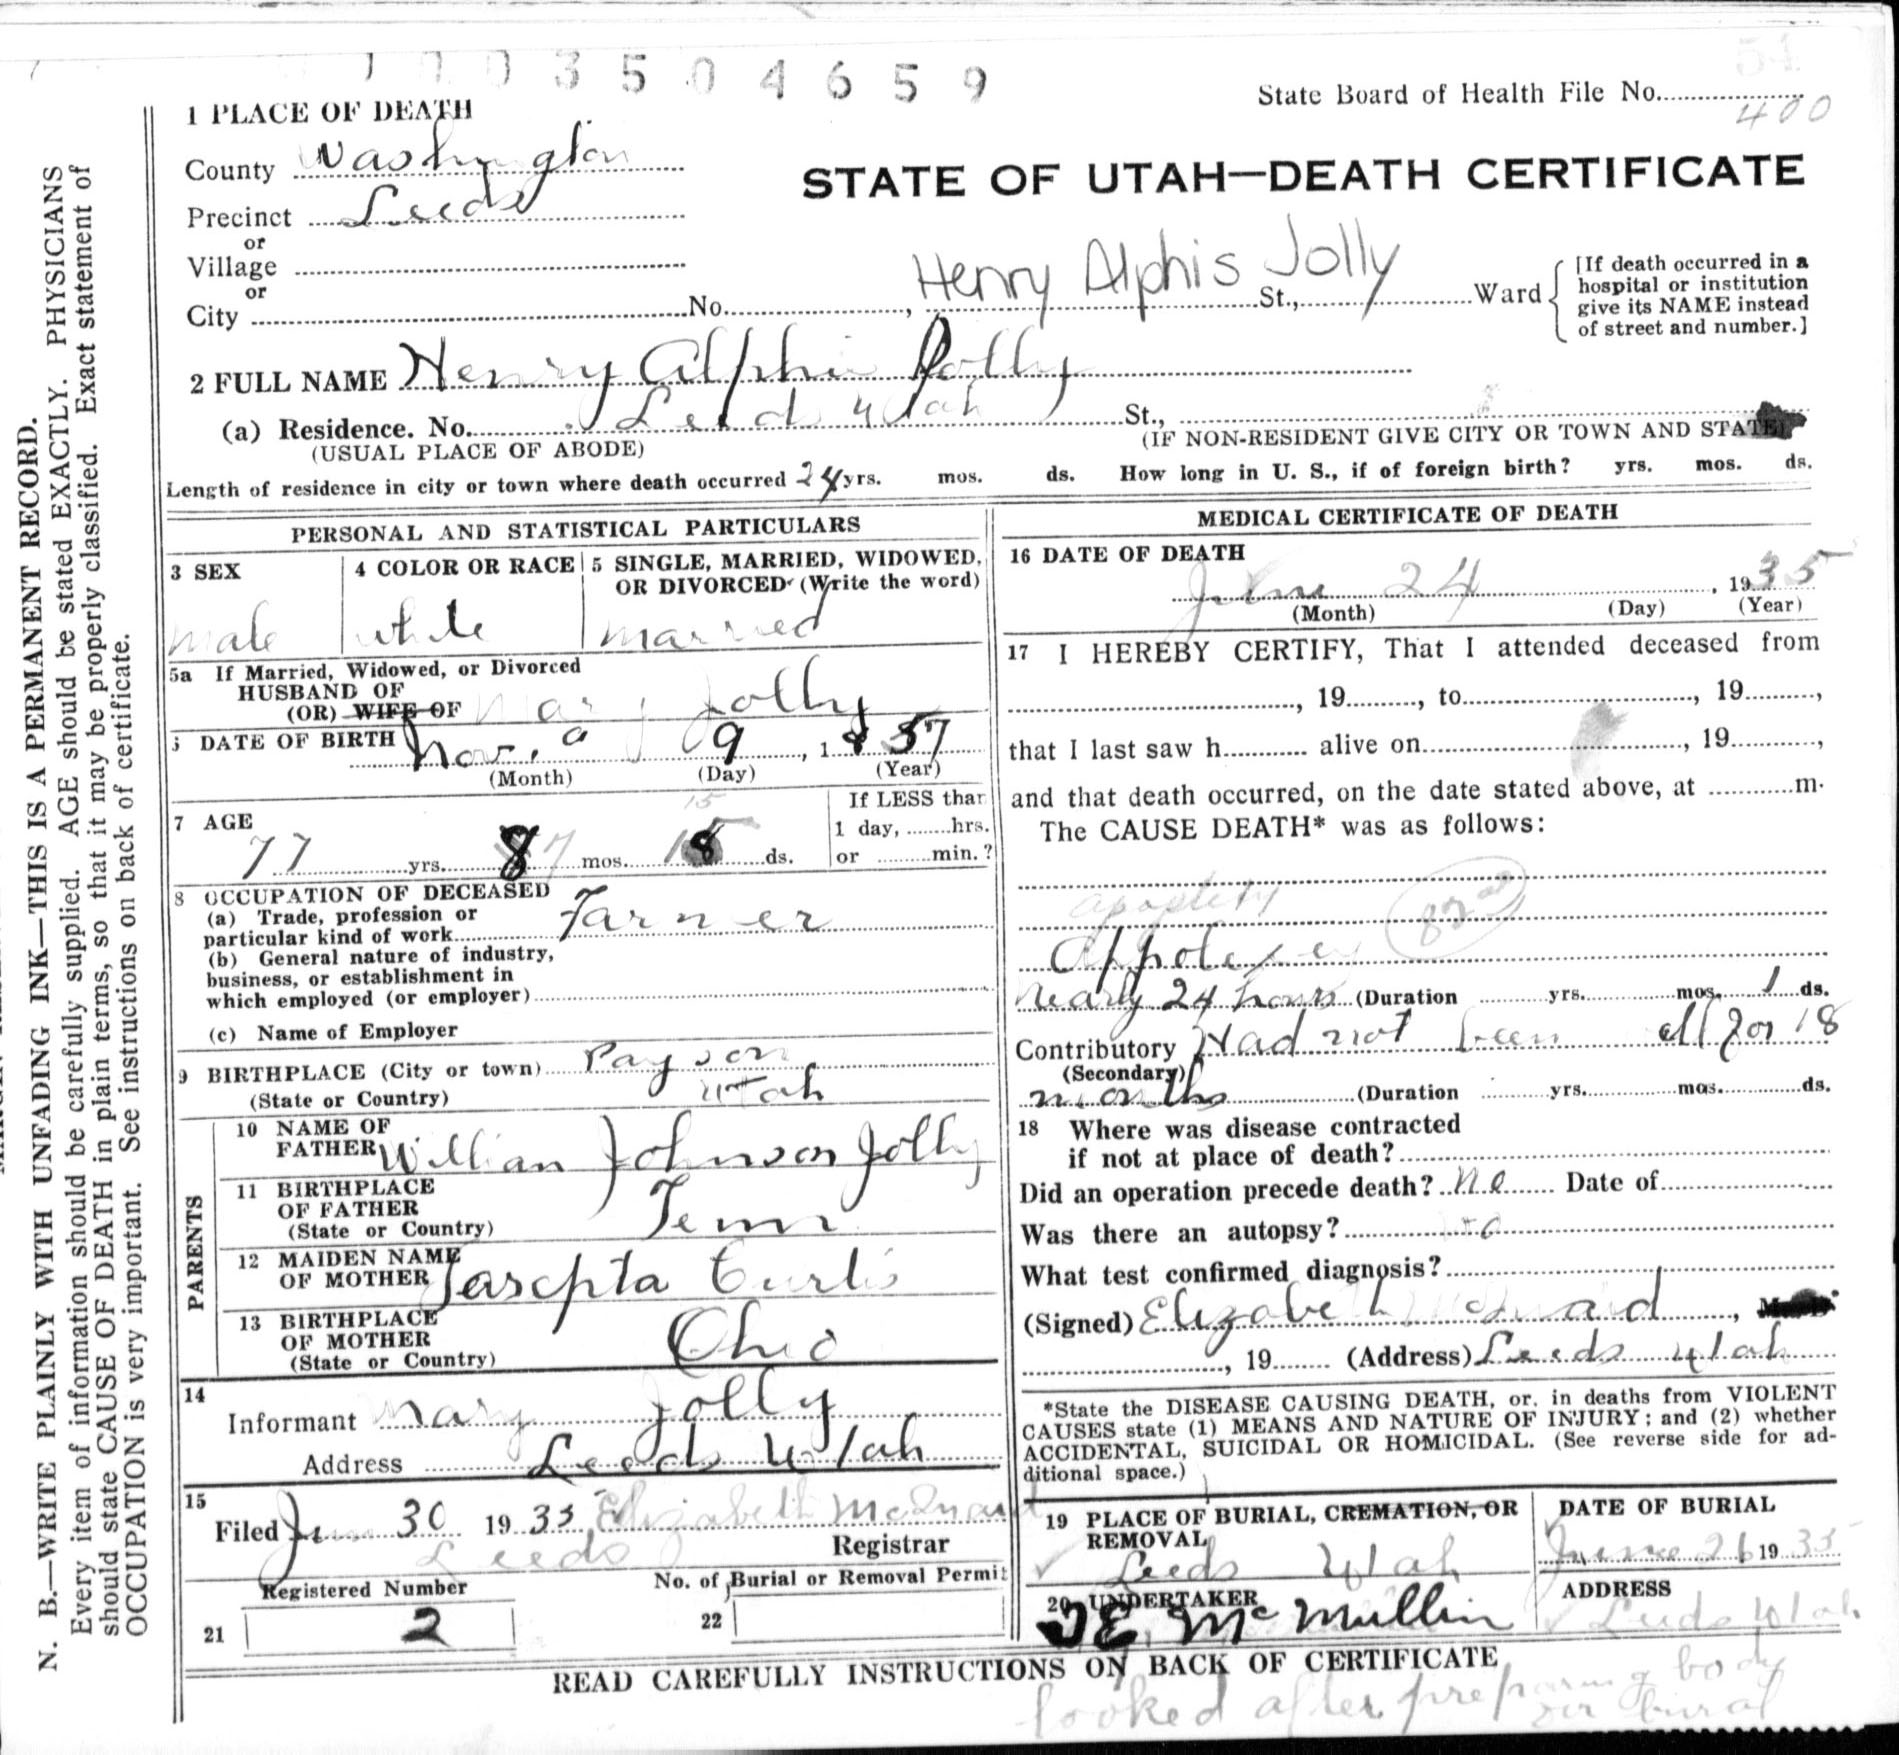 1 1 0 3 5 0 4 6 5 9
State Board of Health File No.
400
1 PLACE OF DEATH
County Washington
Precinct Leeds
or
Village
or
City No. , St., Ward
Henry Alphis Jolly
[If death occurred in a
hospital or institution
give its NAME instead
of street and number.]
STATE OF UTAH—DEATH CERTIFICATE
2 FULL NAME Henry Alphis Jolly
(a) Residence. No. Leeds Utah St.,
(USUAL PLACE OF ABODE)
(IF NON-RESIDENT GIVE CITY OR TOWN AND STATE)
Length of residence in city or town where death occurred 24 yrs. mos. ds. How long in U. S., if of foreign birth? yrs. mos. ds.
PERSONAL AND STATISTICAL PARTICULARS
3 SEX
male
4 COLOR OR RACE
white
5 SINGLE, MARRIED, WIDOWED,
OR DIVORCED (Write the word)
married
5a If Married, Widowed, or Divorced
HUSBAND OF
(OR) WIFE OF Mary Jolly
DATE OF BIRTH Nov. 9, 1857
(Month) (Day) (Year)
7 AGE
77 yrs. 8 mos. ds.
15
If LESS than
1 day, hrs.
or min.?
8 OCCUPATION OF DECEASED
(a) Trade, profession or
particular kind of work Farmer
(b) General nature of industry,
business, or establishment in
which employed (or employer)
(c) Name of Employer
9 BIRTHPLACE (City or town) Payson
(State or Country) Utah
PARENTS
10 NAME OF
FATHER William Johnson Jolly
11 BIRTHPLACE
OF FATHER
(State or Country) Tenn
12 MAIDEN NAME
OF MOTHER Sarepta Curtis
13 BIRTHPLACE
OF MOTHER
(State or Country) Ohio
14
Informant Mary Jolly
Address Leeds Utah
15
Filed Jun 30 1935, Elizabeth McQuaid
Leeds Registrar
Registered Number
21 2
No. of Burial or Removal Permit
22
MEDICAL CERTIFICATE OF DEATH
16 DATE OF DEATH
June 24, 1935
(Month) (Day) (Year)
17 I HEREBY CERTIFY, That I attended deceased from
, 19 , to , 19 ,
that I last saw h alive on , 19 ,
and that death occurred, on the date stated above, at m.
The CAUSE DEATH* was as follows:
apoplexy 82a
Appolexy
nearly 24 hours (Duration yrs. mos. 1 ds.
Contributory Had not been well for 18
(Secondary)
months (Duration yrs. mos. ds.
18 Where was disease contracted
if not at place of death?
Did an operation precede death? no Date of
Was there an autopsy? no
What test confirmed diagnosis?
(Signed) Elizabeth McQuaid,
, 19 (Address) Leeds Utah
*State the DISEASE CAUSING DEATH, or, in deaths from VIOLENT
CAUSES state (1) MEANS AND NATURE OF INJURY; and (2) whether
ACCIDENTAL, SUICIDAL OR HOMICIDAL. (See reverse side for ad-
ditional space.)
19 PLACE OF BURIAL, CREMATION, OR
REMOVAL
Leeds Utah
DATE OF BURIAL
June 26 1935
20 UNDERTAKER
E. McMullin
ADDRESS
Leeds Utah
READ CAREFULLY INSTRUCTIONS ON BACK OF CERTIFICATE
looked after preparing body
for burial
N. B.—WRITE PLAINLY WITH UNFADING INK—THIS IS A PERMANENT RECORD.
Every item of information should be carefully supplied. AGE should be stated EXACTLY. PHYSICIANS
should state CAUSE OF DEATH in plain terms, so that it may be properly classified. Exact statement of
OCCUPATION is very important. See instructions on back of certificate.